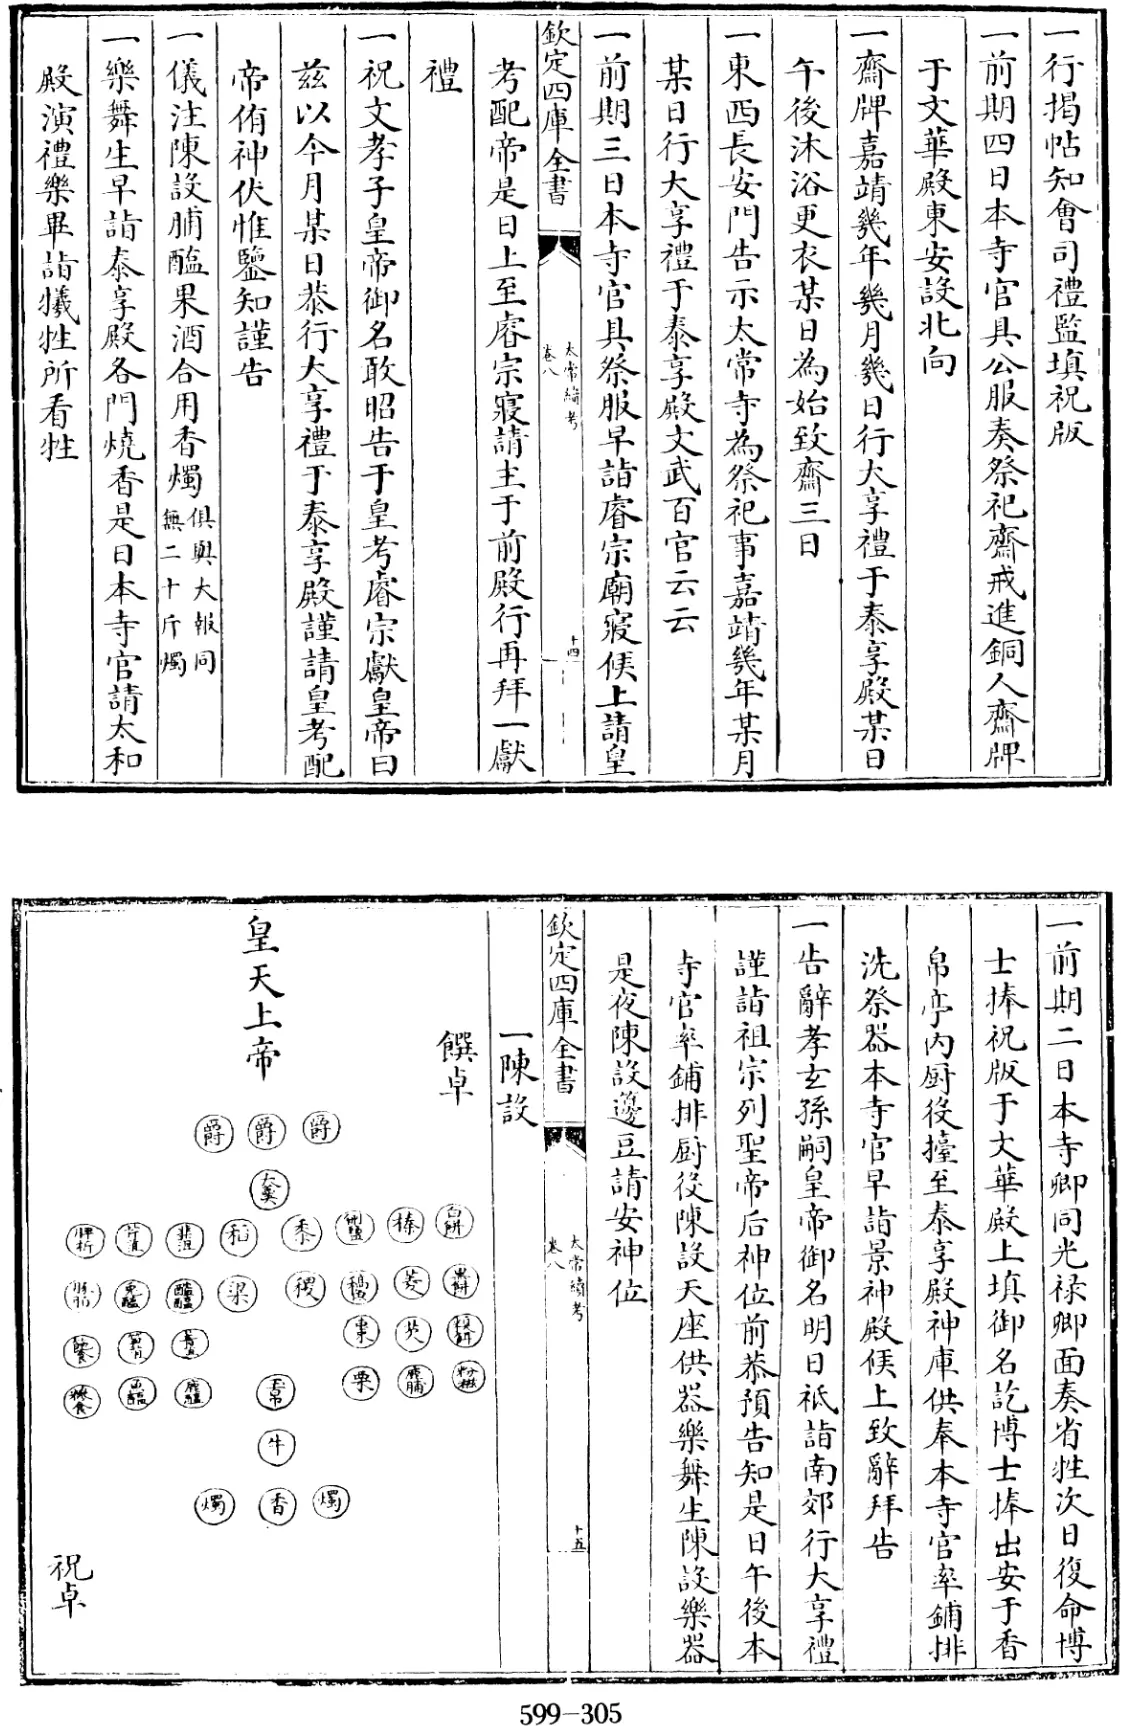 一行揭帖知會司禮監填祝版
一前期四日本寺官具公服奏祭祀齋戒進銅人齋牌
于文華殿東安設北向
一齋牌嘉靖幾年幾月幾日行大享禮于泰享殿某日
午後沐浴更衣某日為始致齋三日
一東西長安門告示太常寺為祭祀事嘉靖幾年某月
某日行大享禮于泰享殿文武百官云云
一前期三日本寺官具祭服早詣睿宗廟寢候上請皇
欽定四庫全書
太常續考
卷八
十四
考配帝是日上至睿宗寢請主于前殿行再拜一獻
禮
一祝文孝子皇帝御名敢昭告于皇考睿宗獻皇帝曰
茲以今月某日恭行大享禮于泰享殿謹請皇考配
帝侑神伏惟鑒知謹告
一儀注陳設脯醢果酒合用香燭俱與大報同
無二十斤燭
一樂舞生早詣泰享殿各門燒香是日本寺官請太和
殿演禮樂畢詣犧牲所看牲
一前期二日本寺卿同光禄卿面奏省牲次日復命博
士捧祝版于文華殿上填御名訖博士捧出安于香
帛亭内厨役擡至泰享殿神庫供奉本寺官率鋪排
洗祭器本寺官早詣景神殿候上致辭拜告
一告辭孝玄孫嗣皇帝御名明日祇詣南郊行大享禮
謹詣祖宗列聖帝后神位前恭預告知是日午後本
寺官率鋪排厨役陳設天座供器樂舞生陳設樂器
是夜陳設籩豆請安神位
欽定四庫全書
太常續考
卷八
十五
一陳設
饌卓
皇天上帝
爵 爵 爵
太羹
白餅 榛 形鹽 黍 稻 韭菹 菁菹 脾析
黑餅 菱 稷 粱 醓醢 兔醢
芡 棗
粉糍 鹿脯 栗 玉帛 鹿醢
牛
燭 香 燭
祝卓
599-305